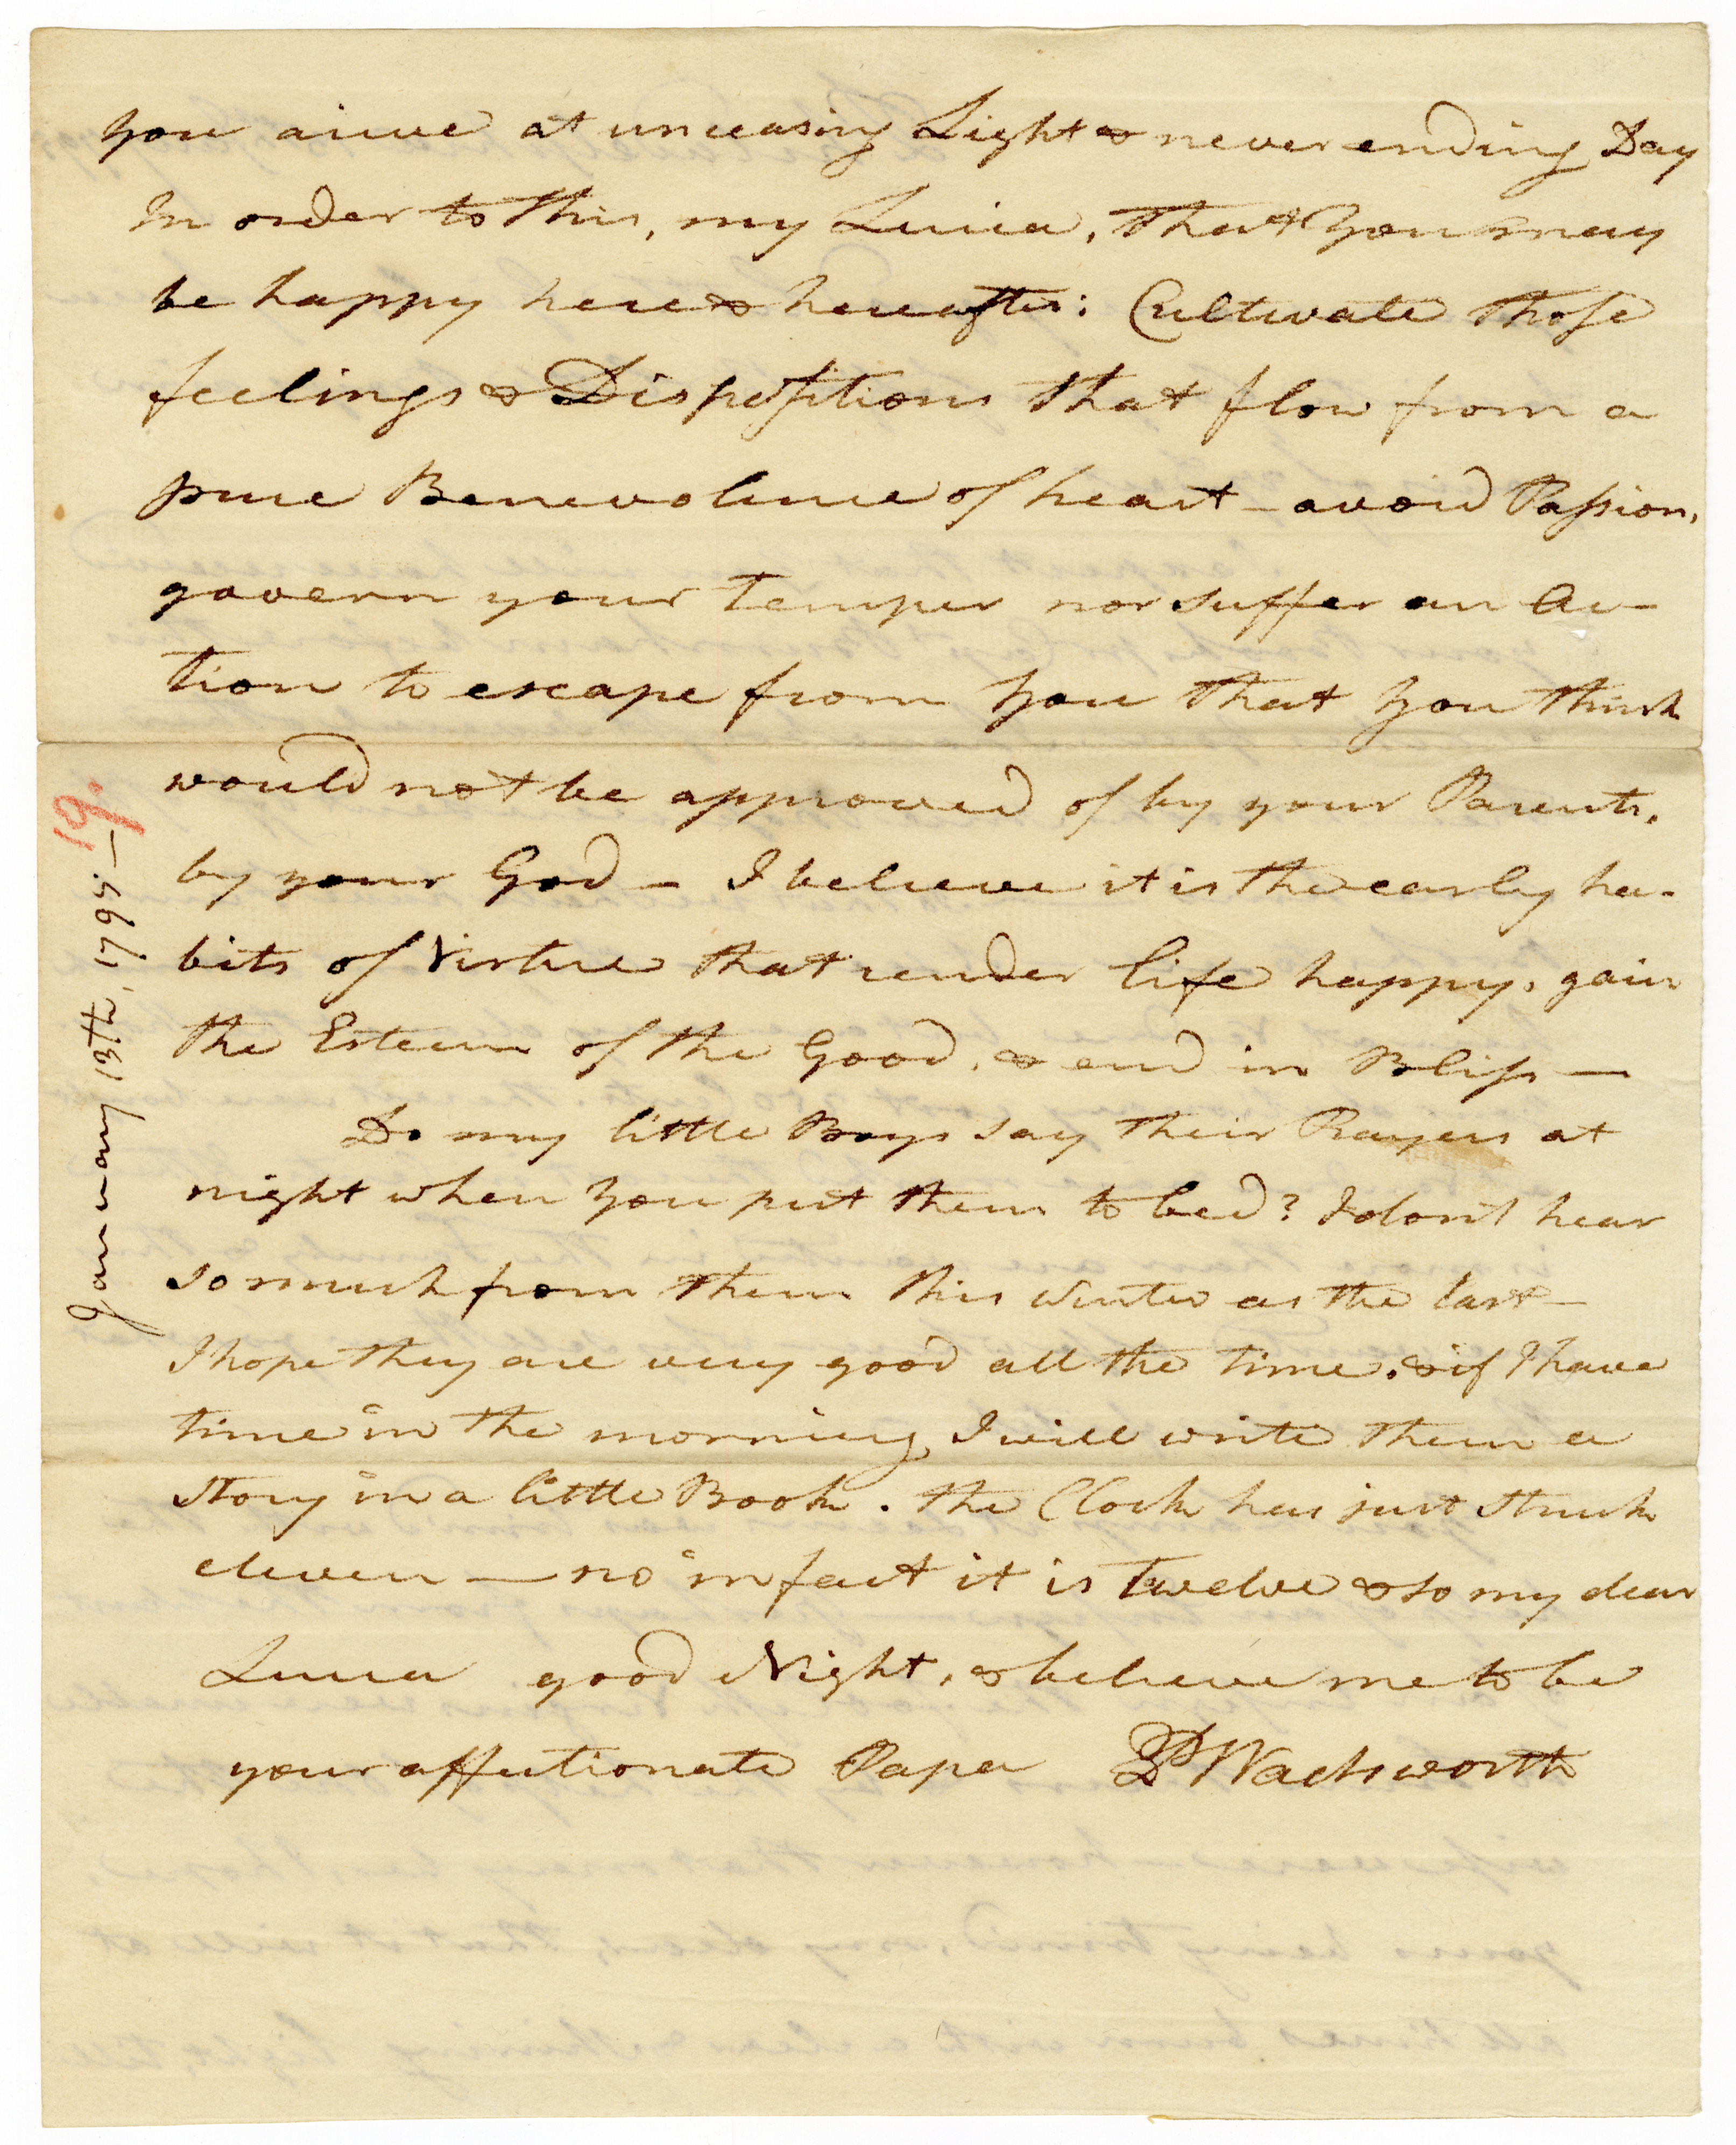 you arive at unceasing Light & never ending Day
In order to this, my Lucia, that you may
be happy here & hereafter: Cultivate those
feelings & Dispositions that flow from a
pure Benevolence of heart – avoid Passion,
govern your temper nor suffer an Ac-
tion to escape from you that you think
would not be approved of by your Parents,
by your God – I believe it is the early ha-
bits of Virtue that render life happy, gain
the Esteem of the Good, & end in Bliss —
Do my little Boys say their Prayers at
night when you put them to bed? I don't hear
so much from them this winter as the last –
I hope they are very good all the time. & if I have
time in the morning I will write them a
story in a little Book. the Clock has just struck
eleven — no in fact it is twelve & so my dear
Lucia good Night, & believe me to be
your affectionate Papa P Wadsworth
January 13th, 1795 —
19.